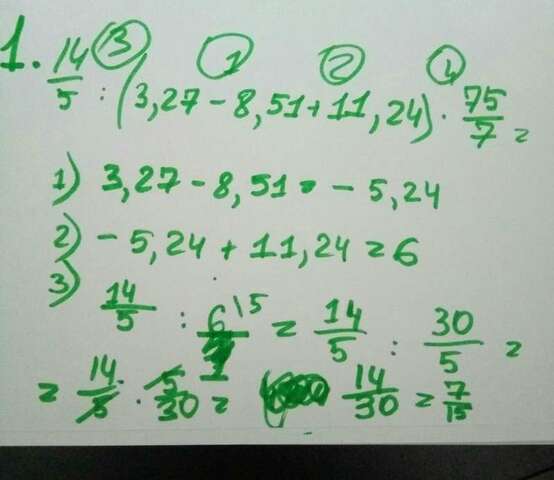 ③ ① ② ④
1. 14/5 : (3,27 - 8,51 + 11,24) · 75/7 =
1) 3,27 - 8,51 = - 5,24
2) - 5,24 + 11,24 = 6
3) 14/5 : 6\5/1 = 14/5 : 30/5 =
= 14/5 · 5/30 = 14/30 = 7/15